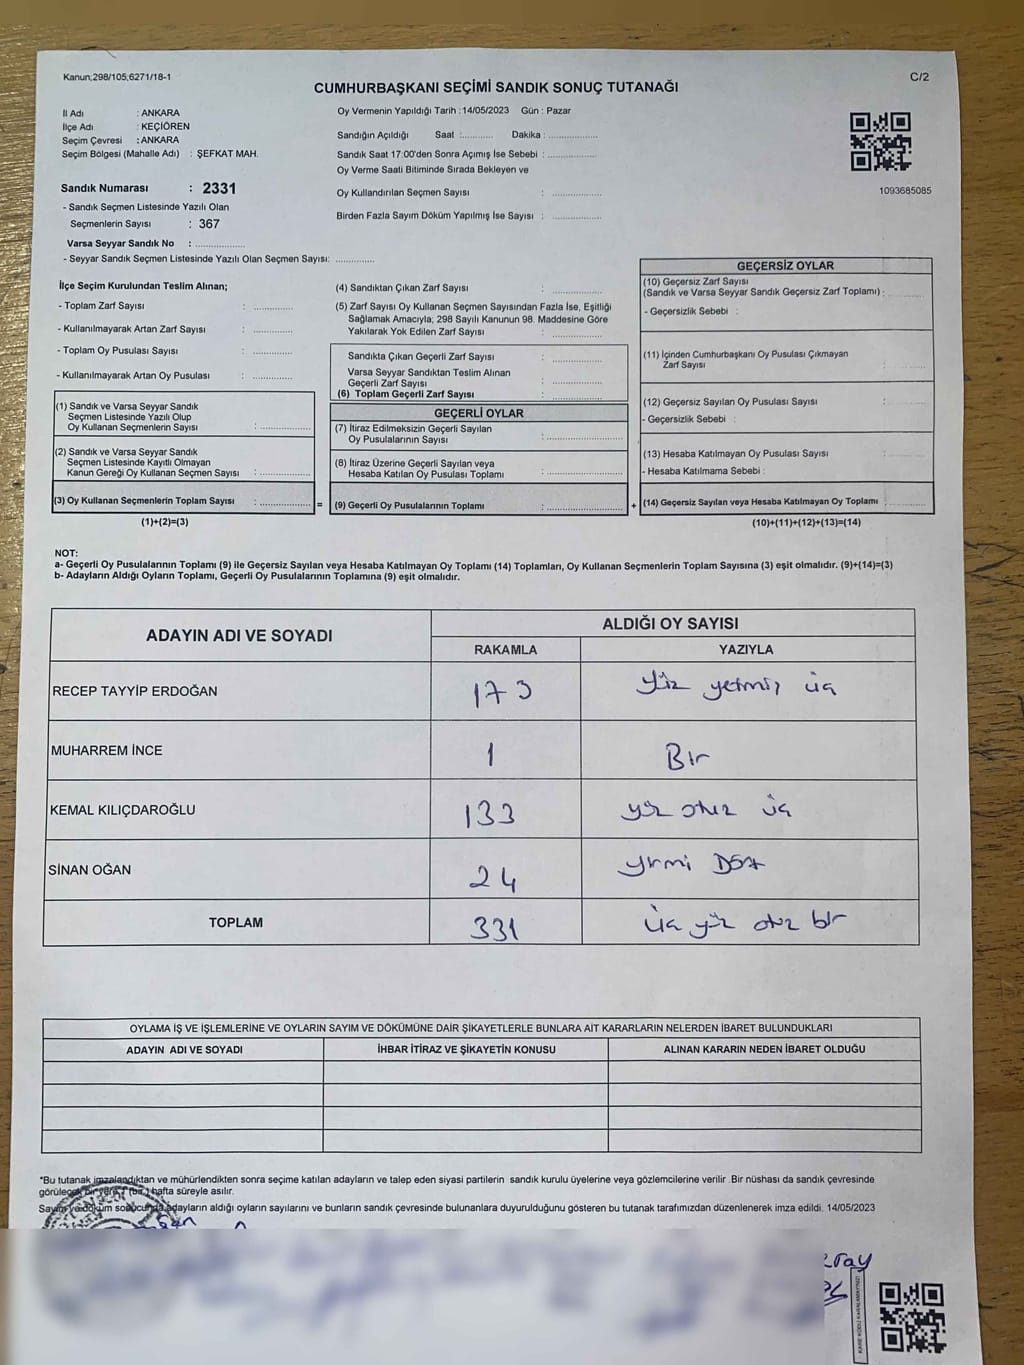 Kanun;298/105;6271/18-1
C/2
CUMHURBAŞKANI SEÇİMİ SANDIK SONUÇ TUTANAĞI
İl Adı : ANKARA
İlçe Adı : KEÇİÖREN
Seçim Çevresi : ANKARA
Seçim Bölgesi (Mahalle Adı) : ŞEFKAT MAH.
Sandık Numarası : 2331
- Sandık Seçmen Listesinde Yazılı Olan
Seçmenlerin Sayısı : 367
Varsa Seyyar Sandık No : ..............
- Seyyar Sandık Seçmen Listesinde Yazılı Olan Seçmen Sayısı: ............
Oy Vermenin Yapıldığı Tarih : 14/05/2023 Gün : Pazar
Sandığın Açıldığı Saat :.......... Dakika : ..............
Sandık Saat 17:00'den Sonra Açımış İse Sebebi : ..............
Oy Verme Saati Bitiminde Sırada Bekleyen ve
Oy Kullandırılan Seçmen Sayısı : ..............
Birden Fazla Sayım Döküm Yapılmış İse Sayısı : ..............
1093685085
İlçe Seçim Kurulundan Teslim Alınan;
- Toplam Zarf Sayısı : ............
- Kullanılmayarak Artan Zarf Sayısı : ............
- Toplam Oy Pusulası Sayısı : ............
- Kullanılmayarak Artan Oy Pusulası : ............
(1) Sandık ve Varsa Seyyar Sandık
Seçmen Listesinde Yazılı Olup
Oy Kullanan Seçmenlerin Sayısı : ..............
(2) Sandık ve Varsa Seyyar Sandık
Seçmen Listesinde Kayıtlı Olmayan
Kanun Gereği Oy Kullanan Seçmen Sayısı : ..............
(3) Oy Kullanan Seçmenlerin Toplam Sayısı : .............. =
(1)+(2)=(3)
(4) Sandıktan Çıkan Zarf Sayısı : ..............
(5) Zarf Sayısı Oy Kullanan Seçmen Sayısından Fazla İse, Eşitliği
Sağlamak Amacıyla; 298 Sayılı Kanunun 98. Maddesine Göre
Yakılarak Yok Edilen Zarf Sayısı : ..............
Sandıkta Çıkan Geçerli Zarf Sayısı : ..............
Varsa Seyyar Sandıktan Teslim Alınan
Geçerli Zarf Sayısı : ..............
(6) Toplam Geçerli Zarf Sayısı : ..............
GEÇERLİ OYLAR
(7) İtiraz Edilmeksizin Geçerli Sayılan
Oy Pusulalarının Sayısı : ..............
(8) İtiraz Üzerine Geçerli Sayılan veya
Hesaba Katılan Oy Pusulası Toplamı : ..............
(9) Geçerli Oy Pusulalarının Toplamı : .............. +
GEÇERSİZ OYLAR
(10) Geçersiz Zarf Sayısı
(Sandık ve Varsa Seyyar Sandık Geçersiz Zarf Toplamı) : ..........
- Geçersizlik Sebebi :
(11) İçinden Cumhurbaşkanı Oy Pusulası Çıkmayan
Zarf Sayısı : ..........
(12) Geçersiz Sayılan Oy Pusulası Sayısı : ..........
- Geçersizlik Sebebi :
(13) Hesaba Katılmayan Oy Pusulası Sayısı : ..........
- Hesaba Katılmama Sebebi :
(14) Geçersiz Sayılan veya Hesaba Katılmayan Oy Toplamı : ..........
(10)+(11)+(12)+(13)=(14)
NOT:
a- Geçerli Oy Pusulalarının Toplamı (9) ile Geçersiz Sayılan veya Hesaba Katılmayan Oy Toplamı (14) Toplamları, Oy Kullanan Seçmenlerin Toplam Sayısına (3) eşit olmalıdır. (9)+(14)=(3)
b- Adayların Aldığı Oyların Toplamı, Geçerli Oy Pusulalarının Toplamına (9) eşit olmalıdır.
ADAYIN ADI VE SOYADI
ALDIĞI OY SAYISI
RAKAMLA YAZIYLA
RECEP TAYYİP ERDOĞAN 173 Yüz yetmiş üç
MUHARREM İNCE 1 Bir
KEMAL KILIÇDAROĞLU 133 yüz otuz üç
SİNAN OĞAN 24 yirmi Dört
TOPLAM 331 üç yüz otuz bir
OYLAMA İŞ VE İŞLEMLERİNE VE OYLARIN SAYIM VE DÖKÜMÜNE DAİR ŞİKAYETLERLE BUNLARA AİT KARARLARIN NELERDEN İBARET BULUNDUKLARI
ADAYIN ADI VE SOYADI İHBAR İTİRAZ VE ŞİKAYETİN KONUSU ALINAN KARARIN NEDEN İBARET OLDUĞU
*Bu tutanak imzalandıktan ve mühürlendikten sonra seçime katılan adayların ve talep eden siyasi partilerin sandık kurulu üyelerine veya gözlemcilerine verilir .Bir nüshası da sandık çevresinde
görülecek bir yere 1 (bir) hafta süreyle asılır.
Sayım ve döküm sonucunda adayların aldığı oyların sayılarını ve bunların sandık çevresinde bulunanlara duyurulduğunu gösteren bu tutanak tarafımızdan düzenlenerek imza edildi. 14/05/2023